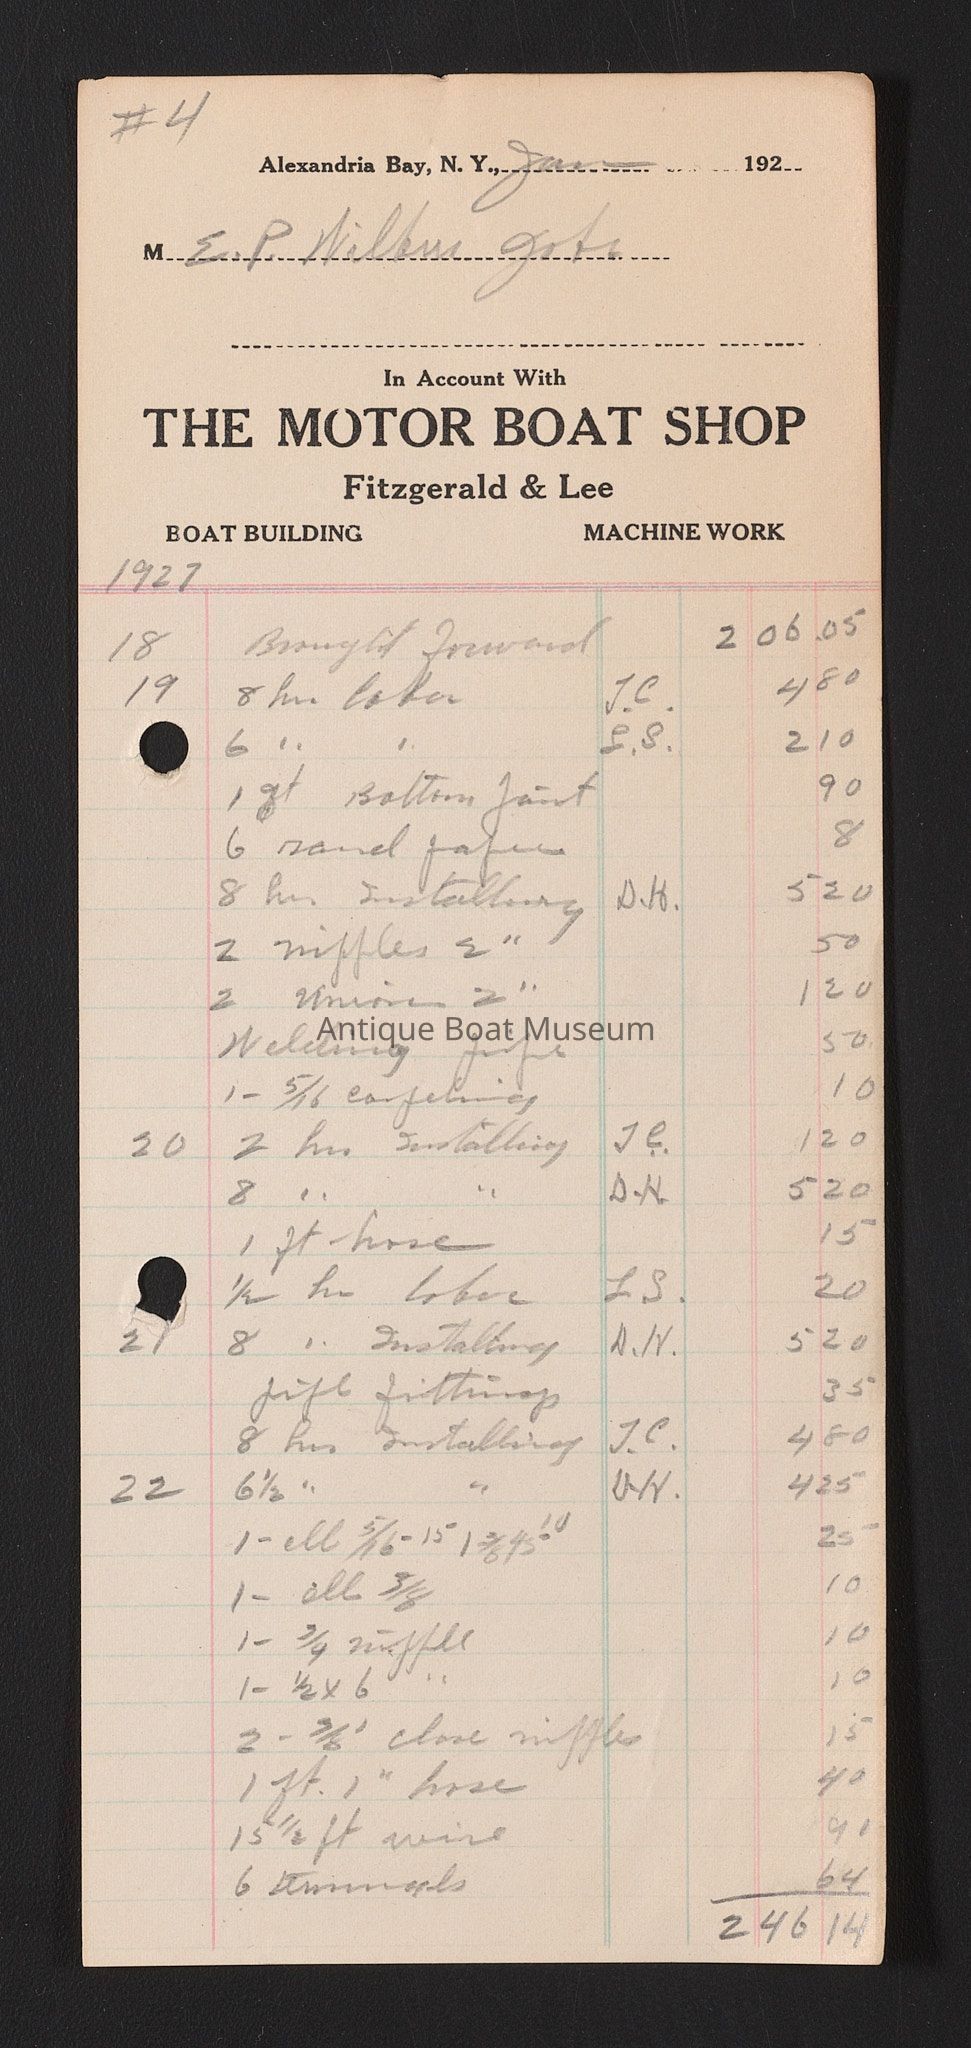 #4
Alexandria Bay, N. Y., Jan 192
M E. P. Wilbur
In Account With
THE MOTOR BOAT SHOP
Fitzgerald & Lee
BOAT BUILDING MACHINE WORK
1927
18 Brought Forward 206.05
19 8 hrs labor T.C. 4 80
6 " " L.S. 2 10
1 qt Bottom Paint 90
6 sand paper 8
8 hrs Installing D.H. 5 20
2 nipples 2" 50
2 Unions 2" 1 20
Welding pipe 50
1- 5/16 coupling 10
20 2 hrs Installing T.C. 1 20
8 " " D.H. 5 20
1 ft hose 15
1/2 hr labor L.S. 20
21 8 " Installing D.H. 5 20
pipe fittings 35
8 hrs Installing T.C. 4 80
22 6 1/2 " " D.H. 4 25
1- ell 5/16 - 15 1 3/8 45° 10 25
1- ell 3/8 10
1- 3/4 nipple 10
1- 1/2 x 6 " 10
2 - 3/8" close nipples 15
1 ft. 1" hose 40
15 1/2 ft wire 91
6 terminals 64
246 14
Antique Boat Museum